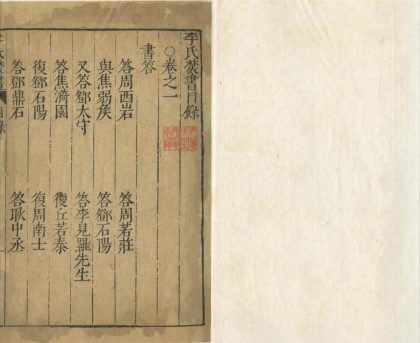 李氏焚書目錄
○卷之一
書答
答周西岩　答周若莊
與焦弱侯　答鄧石陽
又答鄧太守　答李見羅先生
答焦漪園　復丘若泰
復鄧石陽　復周南士
答鄧鼎石　答耿中丞